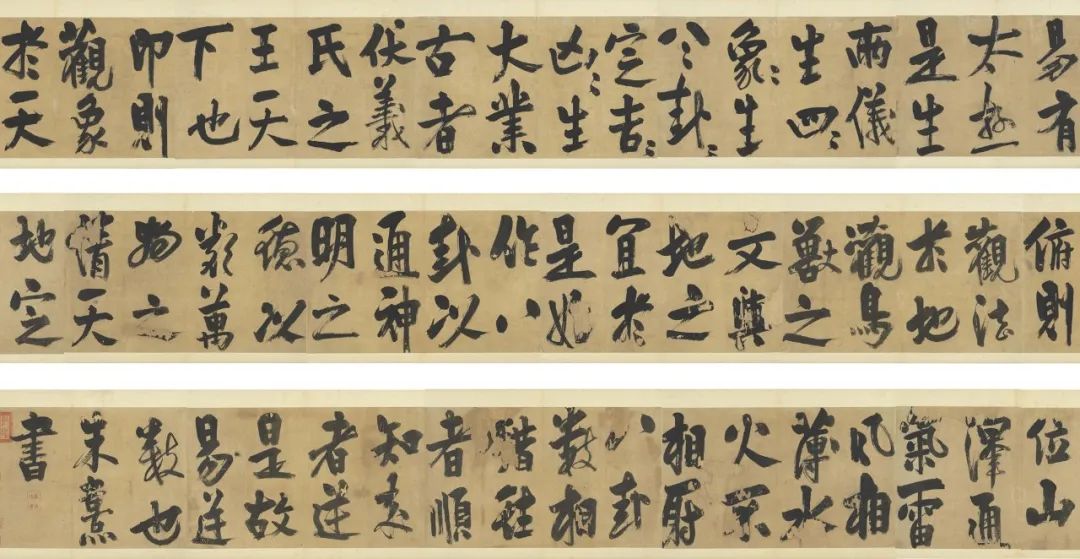 易有
太極
是生
兩儀
生四〻
象〻生
八〻卦〻
定吉〻
凶〻生
大業
古者
伏羲
氏之
王天
下也
仰則
觀象
扵天
俯則
觀法
扵地
觀鳥
獸之
文與
地之
宜扵
是始
作八
卦以
通神
明之
德以
類萬
物之
情天
地定
位山
澤通
氣雷
風相
薄水
火不
相射
八卦
數相
錯往
者順
知來
者逆
是故
易逆
數也
朱熹
書